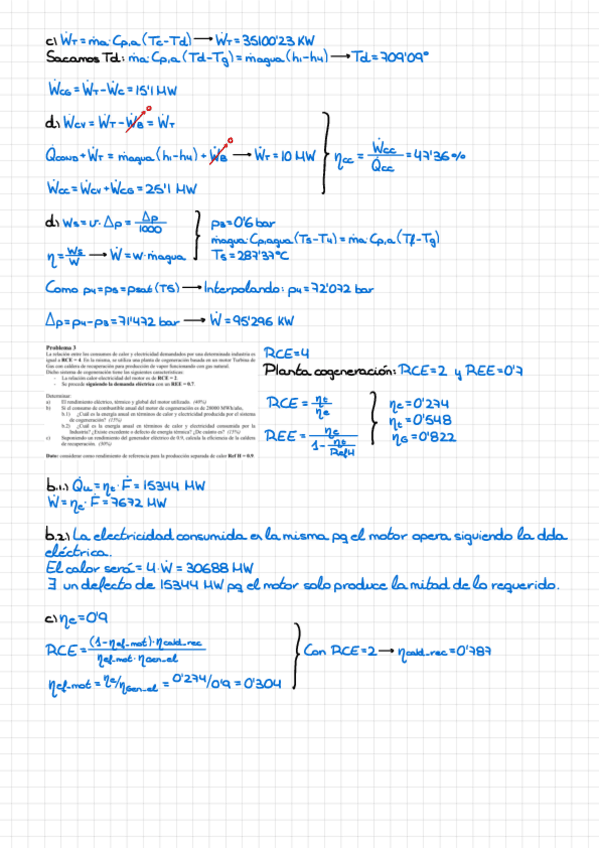 c) ẆT = ṁa·Cp,a (Tc-Td) → ẆT = 35100'23 KW
Sacamos Td: ṁa·Cp,a (Td-Tg) = ṁagua (h1-h4) → Td = 709'09°
ẆCG = ẆT-ẆC = 15'1 MW
d) ẆCV = ẆT-ẆB = ẆT
0
Q̇COND + ẆT = ṁagua (h1-h4) + ẆB → ẆT = 10 MW
0
ẆCC = ẆCV + ẆCG = 25'1 MW
ηCC = ẆCC / Q̇CC = 47'36%
d) WS = v·Δp = Δp / 1000
η = WS / W → Ẇ = w·ṁagua
p3 = 0'6 bar
ṁagua·Cp,agua (T5-T4) = ṁa·Cp,a (Tf-Tg)
T5 = 287'37°C
Como p4 = p5 = psat (T5) → Interpolando: p4 = 72'072 bar
Δp = p4-p3 = 71'472 bar → Ẇ = 95'296 KW
Problema 3
La relación entre los consumos de calor y electricidad demandados por una determinada industria es
igual a RCE = 4. En la misma, se utiliza una planta de cogeneración basada en un motor Turbina de
Gas con caldera de recuperación para producción de vapor funcionando con gas natural.
Dicho sistema de cogeneración tiene las siguientes características:
- La relación calor-electricidad del motor es de RCE = 2.
- Se procede siguiendo la demanda eléctrica con un REE = 0.7.
Determinar:
a) El rendimiento eléctrico, térmico y global del motor utilizado. (40%)
b) Si el consumo de combustible anual del motor de cogeneración es de 28000 MWh/año,
b.1) ¿Cuál es la energía anual en términos de calor y electricidad producida por el sistema
de cogeneración? (15%)
b.2) ¿Cuál es la energía anual en términos de calor y electricidad consumida por la
Industria? ¿Existe excedente o defecto de energía térmica? ¿De cuánto es? (15%)
c) Suponiendo un rendimiento del generador eléctrico de 0.9, calcula la eficiencia de la caldera
de recuperación. (30%)
Dato: considerar como rendimiento de referencia para la producción separada de calor Ref H = 0.9
RCE = 4
Planta cogeneración: RCE = 2 y REE = 0'7
RCE = ηt / ηe
REE = ηe / (1 - ηt / RefH)
ηe = 0'274
ηt = 0'548
ηG = 0'822
b.1.) Q̇u = ηt·Ḟ = 15344 MW
Ẇ = ηe·Ḟ = 7672 MW
b.2) La electricidad consumida es la misma pq el motor opera siguiendo la dda
eléctrica.
El calor será = 4·Ẇ = 30688 MW
∃ un defecto de 15344 MW pq el motor solo produce la mitad de lo requerido.
c) ηe = 0'9
RCE = (1-ηef_mot)·ηcald_rec / ηef_mot·ηgen_el
ηef_mot = ηe/ηgen_el = 0'274/0'9 = 0'304
Con RCE = 2 → ηcald_rec = 0'787